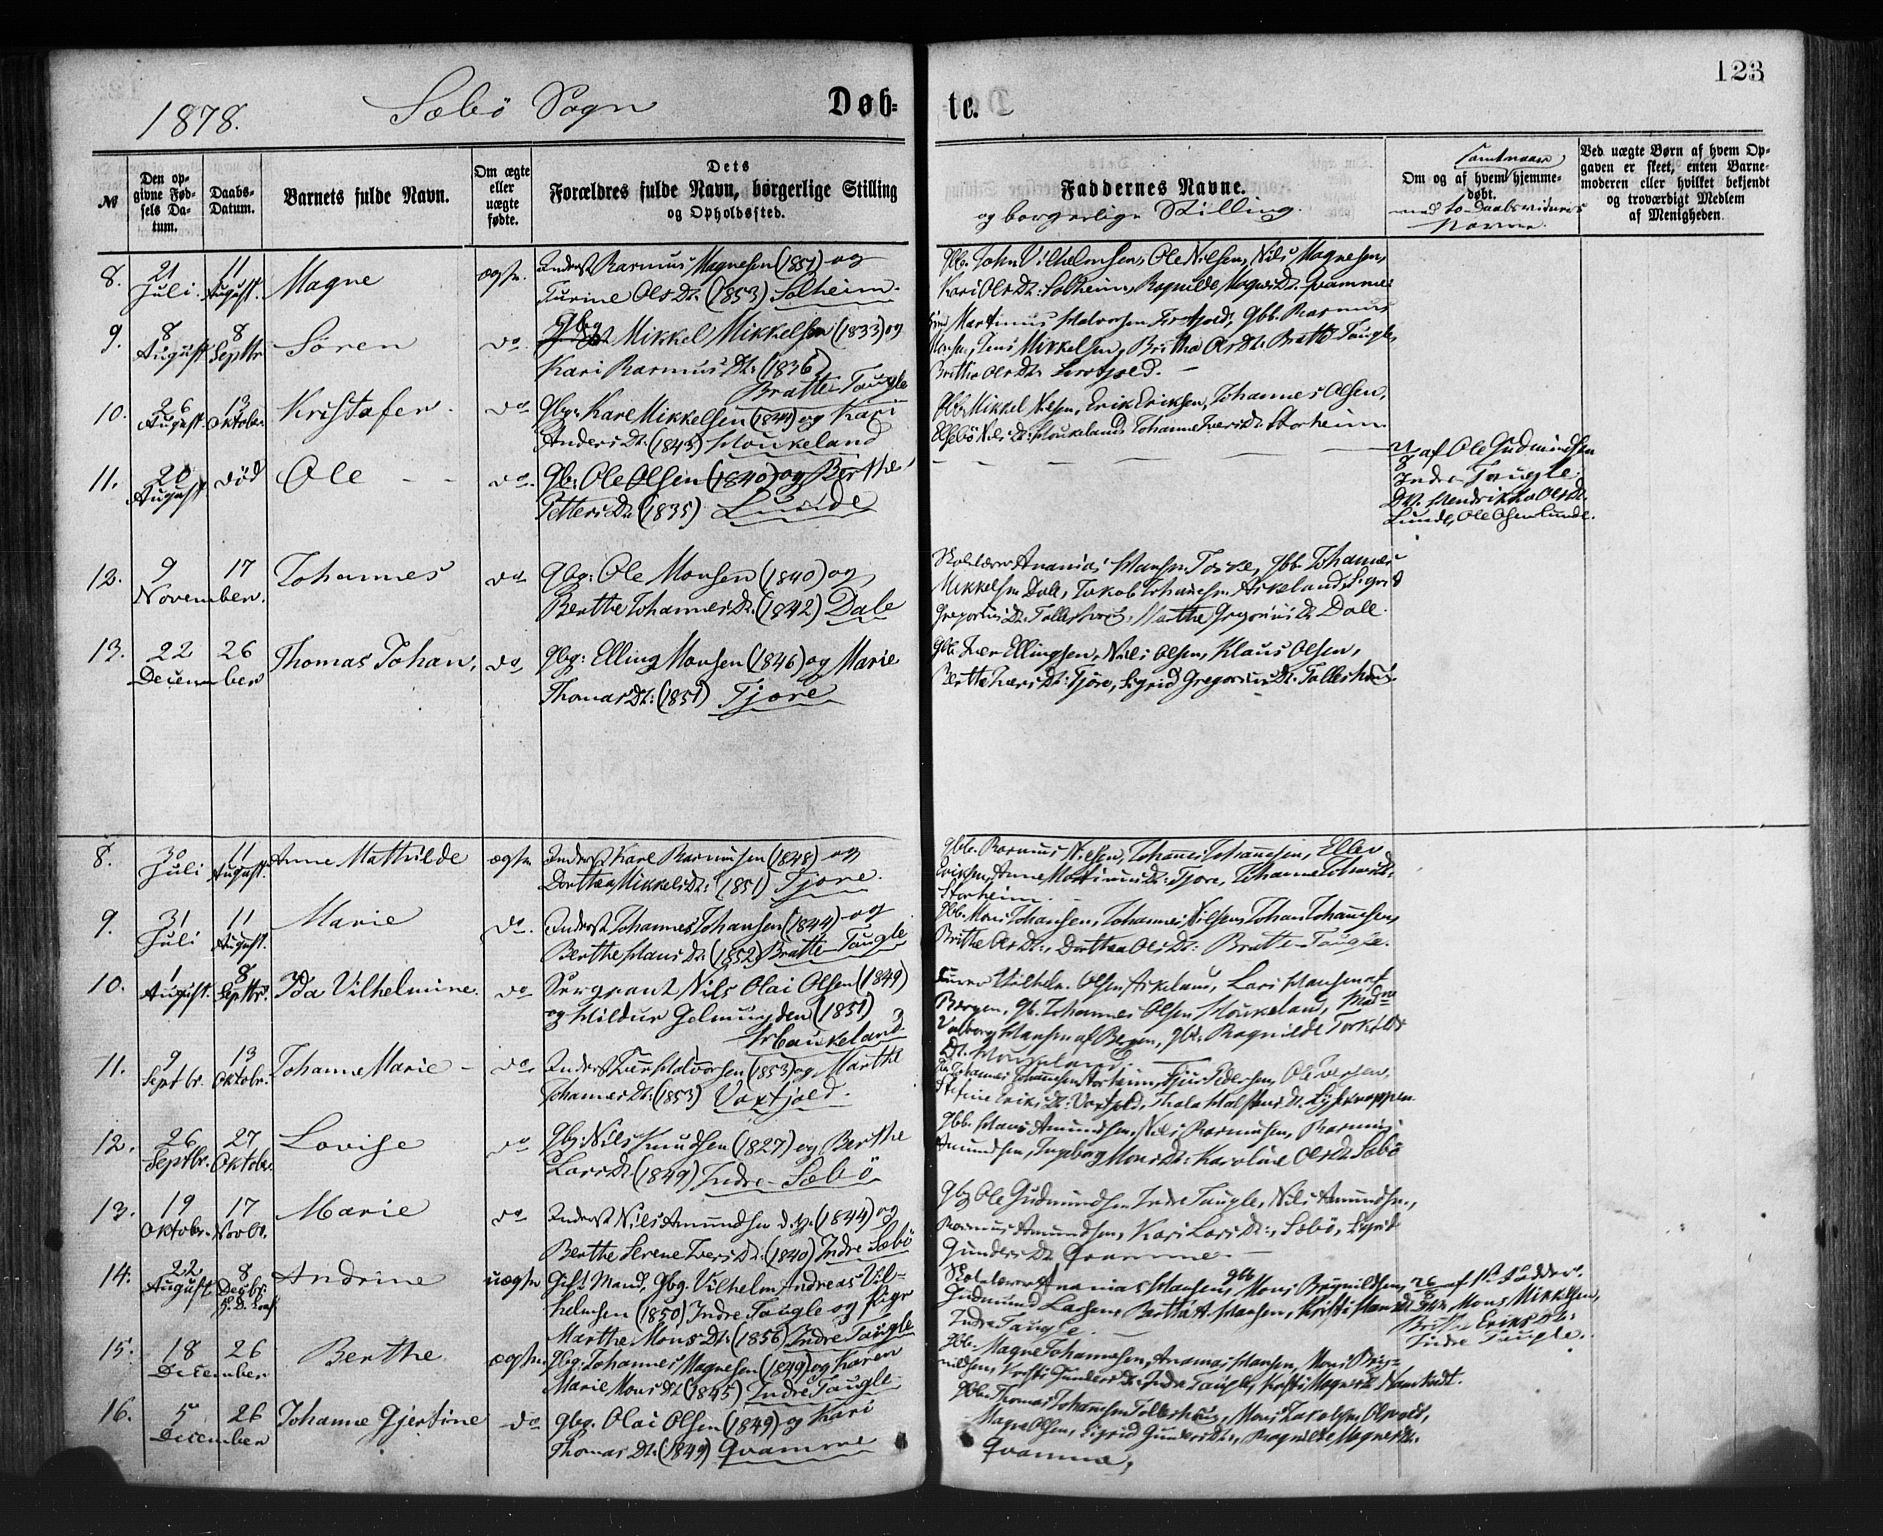 123
1878. Sæbö Sogn Døb- te.
№ Den opgivne Fødsels Datum. Daabs-Datum. Barnets fulde Navn. Om ægte eller uægte fødte. Dets Forældres fulde Navn, borgerlige Stilling og Opholdssted.
Faddernes Navne. og borgerlige Stilling. Om og af hvem hjemmedøbt. samt med to Daabsvidners Navne. Ved uægte Børn af hvem Opgaven er skeet, enten Barnemoderen eller hvilket bekjendt og troværdigt Medlem af Menigheden.
8. 21 Juli. 11 August. Magne ægte. Inderst Rasmus Magnesen (1851) og
Turine Olsdt. (1853) Solheim.
Gbr. John Vilhelmsen, Ole Nilsen, Nils Magnesen,
Kari Olsdt. Solheim, Ragnilde Magnesdt. Qvamme.
9. 8 August 8 Septbr Sören do Gbrg Mikkel Mikkelsen (1833) og
Kari Rasmusdt. (1836)
Bratte-Taugle
Martinus Halvorsen, Gbb. Rasmus
Hansen, Jens Mikkelsen, Britha Olsdt. Bratte Taugle,
Britha Olsdt.
10. 26 August 13 Oktober Kristofer. do Gbg. Kare Mikkelsen (1844) og Kari
Andersdt. (1843) Houkeland
Gbb. Mikkel Nilsen, Erik Eriksen, Johannes Olsen,
Elsebö Nilsdt. Houkeland, Johanne Iversdt. Storheim
11. 20 August död Ole do. gb. Ole Olsen (1840) og Berthe
Pettersdt. (1835) Lunde
af Ole Gudmundsen
Indre Taugle.
DV. Hendrikka Olsdt.
Lunde, Ole Olsen Lunde.
12. 9 17 November. Johannes do gbg. Ole Monsen (1840) og
Berthe Johannesdt. (1842) Dale
Skolelærer Ananias Hansen, Gbb. Johannes
Mikkelsen Dale, Jakob Johannesen Askeland, Sigrid
Gregoriusdt. Tolleshoug, Marthe Gregoriusdt. Dale.
13. 22 26 December Thomas Johan, do gbg: Elling Monsen (1846) og Marie
Thomasdt: (1851) Tjore
gbb. Iver Ellingsen, Nils Olsen, Klaus Olsen,
Berthe Larsdt. Tjore, Sigrid Gregoriusdt. Tolleshoug.
8. 30 Juli 11 August. Anne Mathilde ægte Inderst Karl Rasmusen (1848) og
Dorthea Mikkelsdt: (1851) Tjore.
gbb. Rasmus Nilsen, Johannes Johannesen, Ellev
Eriksen, Anne Martinusdt. Tjore, Johanne Johnsdt.
Storheim.
9. 31 Juli 11 August. Marie do. Inderst Johannes Johansen (1844) og
Berthe Hansdt. (1852) Bratte-Taugle
gbb. Mons Johansen, Johannes Nilsen, Johan Johannesen,
Brithe Olsdt., Dorthea Olsdt. Bratte-Taugle.
10. 1 August. 8 Septbr. Ida Vilhelmine. do Sergeant Nils Olai Olsen (1849)
og Hildur Gelmuyden (1851)
Houkeland
Vilhelm Olsen Askeland, Lars Hansen af
Bergen, gb. Johannes Olsen Houkeland, Mad
Valborg Hansen af Bergen, gbk. Ragnilde Torkilds
Dt. Houkeland.
11. 9 Septbr. 13 Oktobr. Johanne Marie - do. Inderst Iver Halvorsen (1853) og Marthe
Johannesdt. (1853) Vaxfjold.
Johannes Johannesen Storheim, Sjur Pedersen, Ole Iversen,
Eriksdt. Vaxfjold,
12. 26 Septbr. 27 Oktobr. Lovise do gbg: Nils Knudsen (1827) og Berthe
Larsdt. (1849) Indre-Sæbö
Gbb. Hans Amundsen, Nils Rasmusen, Rasmus
Amundsen, Ingeborg Monsdt. Karoline Olsdt. Sæbö
13. 19 Oktobr. 17 Novbr. Marie do Inderst Nils Amundsen d.y. (1844) og
Berthe Serene Iversdt. (1840) Indre Sæbö
Gbg. Ole Gudmundsen Indre Taugle, Nils Amundsen,
Rasmus Amundsen, Kari Larsdt., Sæbö, Sigrid
Gundersdt. Qvamme.
14. 22 August 8 Decbr. Andrine uægte Gift Mand, Gbg. Vilhelm Andreas Vil-
helmsen (1850) Indre Taugle og Pige
Marthe Monsdt. (1856) Indre Taugle
Skolelærer Ananias Hansen, gbb Mons Brynildsen,
Gudmund Larsen, Britha Hansen, Kristi
Indre Taugle.
26/8 af Fader.
DV. Mons Mikkelsen,
Britha Eriksdt.
Indre Taugle.
15. 18 26 December Berthe ægte. gbg. Johannes Magnesen (1849) og Karen
Marie Monsdt. (1845) Indre Taugle.
gbb. Magne Johannesen, Ananias Hansen, Mons Bry-
nildsen, Kristi Gundersdt. Indre Taugle, Kristi Magnesdt.
16. 5 26 December Johanne Gjertine do gbg. Olai Olsen (1849) og Kari
Thomasdt. (1849) Qvamme
gbb. Thomas Johannesen Tolleshoug, Mons Jakobsen,
Magne Olsen, Sigrid Gundersdt., Ragnilde Magnesdt.
Qvamme,